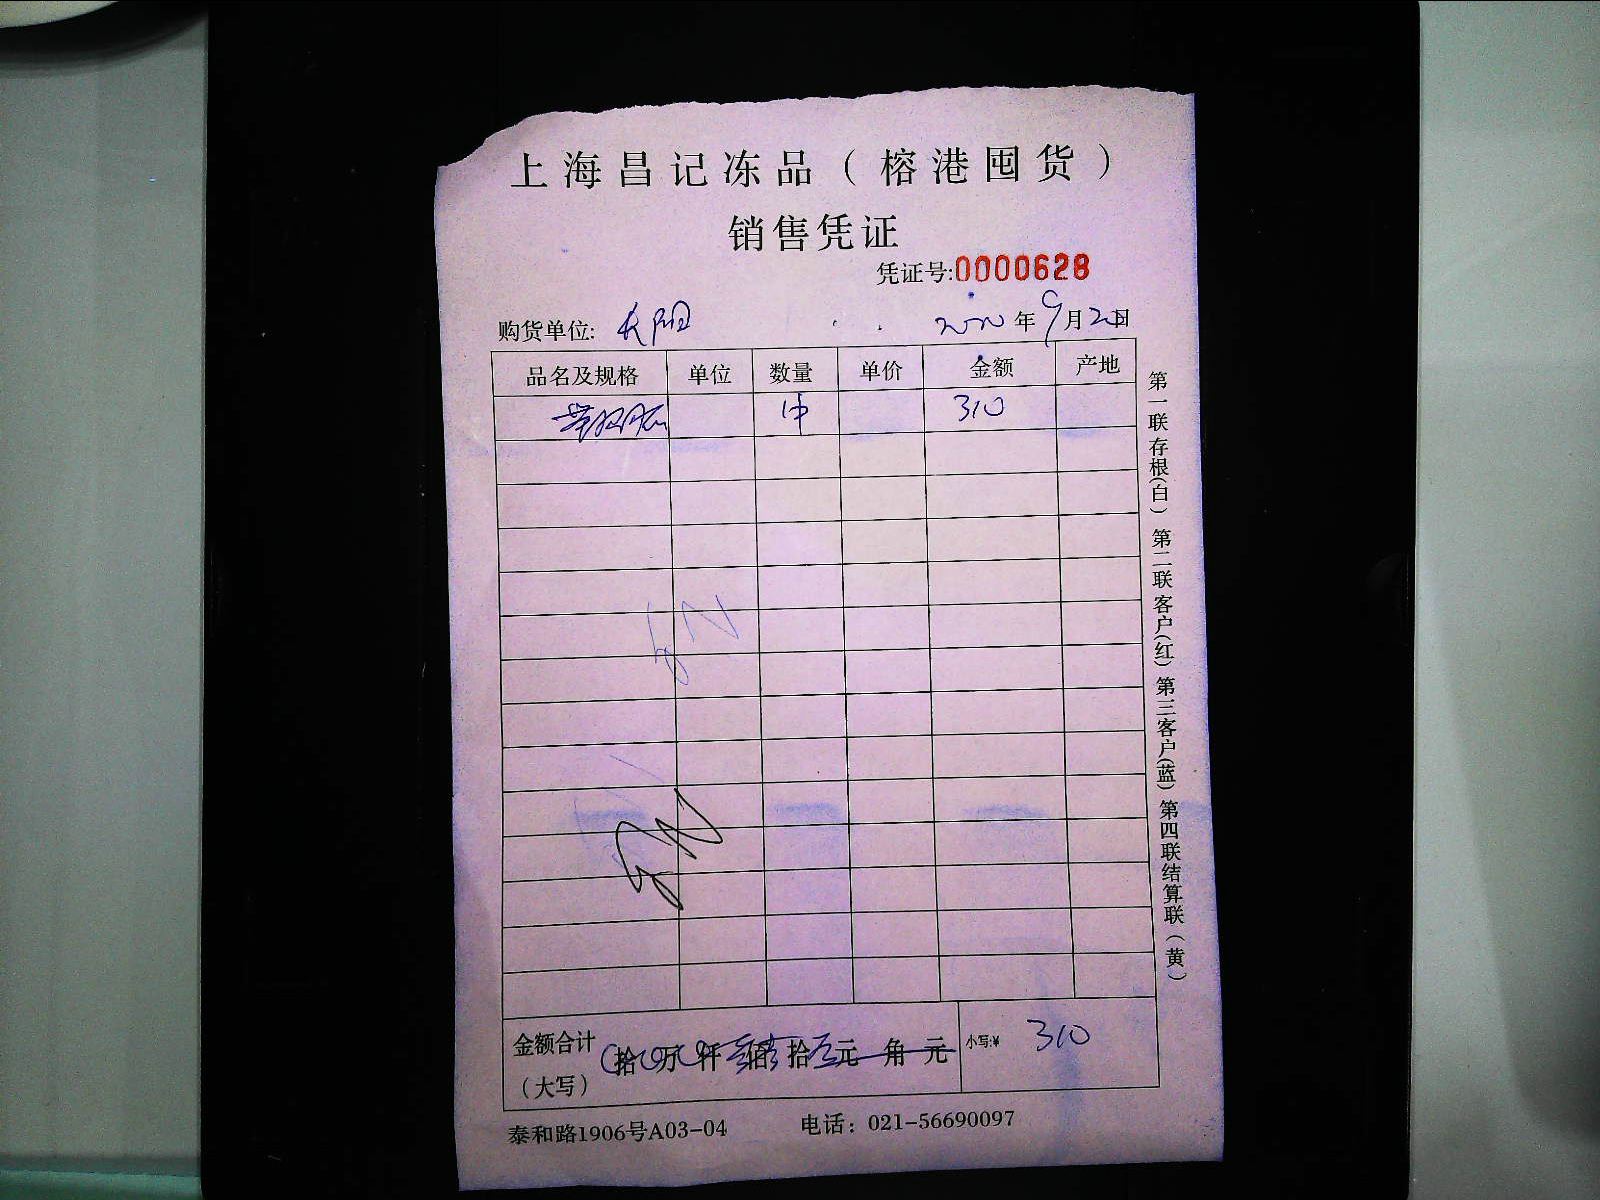 上海昌记冻品（榕港囤货）
销售凭证
凭证号:0000628
购货单位: 长阳 2020年9月20日
品名及规格 单位 数量 单价 金额 产地
1件 310
金额合计 拾 万 仟 佰 拾 元 角 元 小写:¥ 310
（大写）
泰和路1906号A03-04 电话：021-56690097
第一联存根(白) 第二联客户(红) 第三客户(蓝) 第四联结算联（黄）